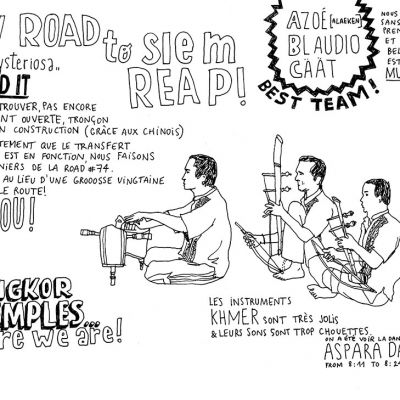 ROAD
to SIEM
REAP!
ysteriosa„
D IT
TROUVER, PAS ENCORE
NT OUVERTE, TRONÇON
N CONSTRUCTION (GRÂCE AUX CHINOIS)
TEMENT QUE LE TRANSFERT
EST EN FONCTION, NOUS FAISONS
NIERS DE LA ROAD #74.
AU LIEU D'UNE GROOOSSE VINGTAINE
LE ROUTE!
OU!
AZOÉ [ALAEKEN]
BLAUDIO
GÄÄT
BEST TEAM!
NOUS
SANS
PREN
ET
BEL
EST
MU
GKOR
MPLES...
re we are!
LES INSTRUMENTS
KHMER SONT TRÈS JOLIS
& LEURS SONS SONT TROP CHOUETTES.
ON A ÉTÉ VOIR LA DAN
ASPARA DA
FROM 8:11 TO 8:2